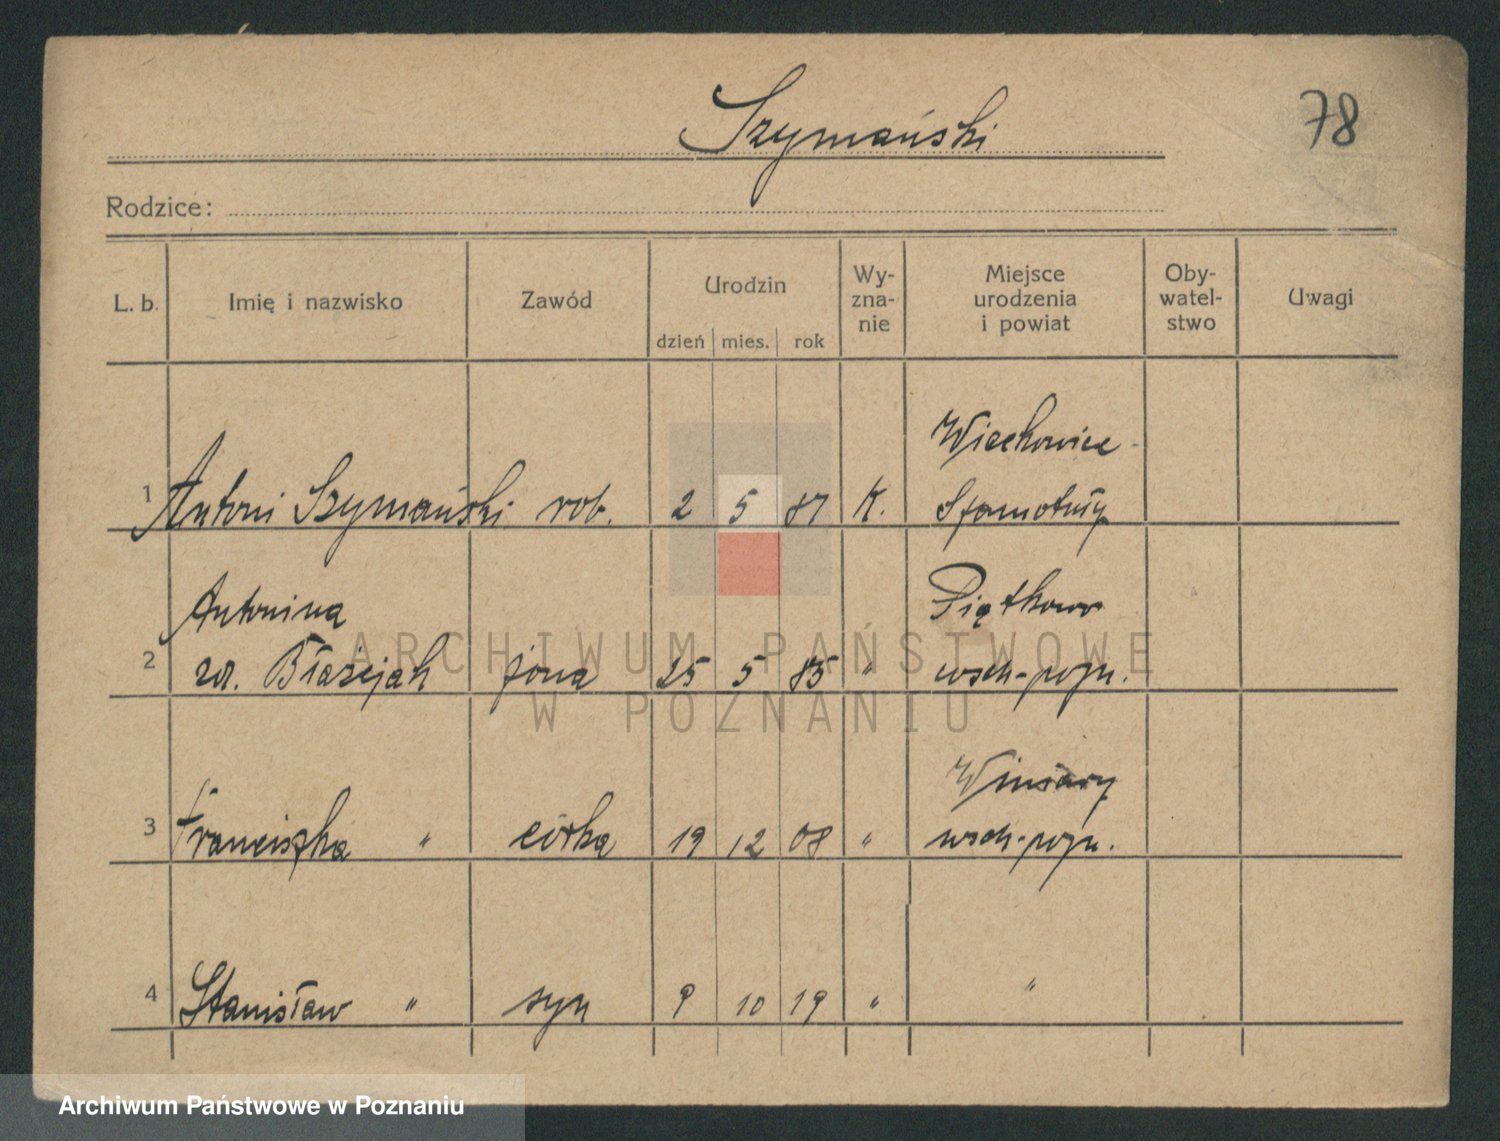 Szymański
78
Rodzice:
L. b. Imię i nazwisko Zawód Urodzin dzień mies. rok Wy-zna-nie Miejsce urodzenia i powiat Oby-watel-stwo Uwagi
Wiechowice -
1 Antoni Szymański rob. 2 5 87 K. Szamotuły
Antonina Piątkowo
2 ur. Błażejak żona 25 5 85 " wsch-pozn.
Winiary
3 Franciszka " córka 19 12 08 " wsch-pozn.
4 Stanisław " syn 9 10 19 " "
ARCHIWUM PAŃSTWOWE
W POZNANIU
Archiwum Państwowe w Poznaniu